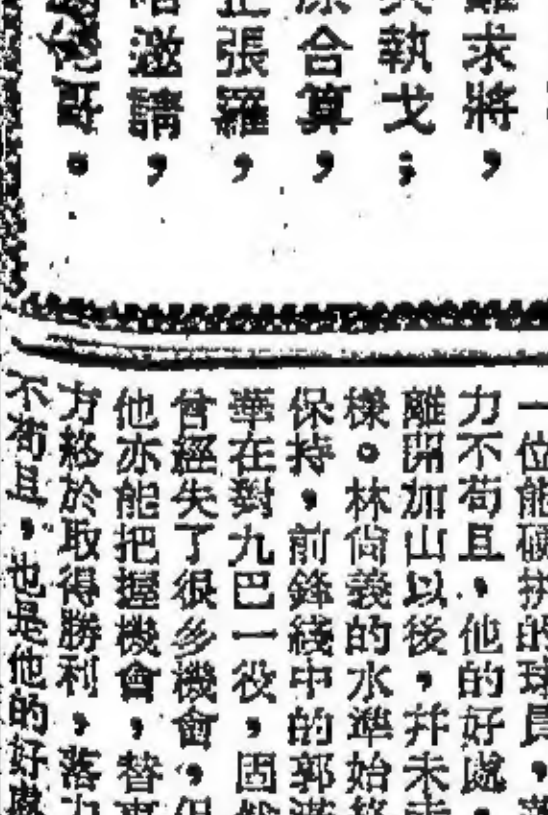 求將，
執戈；
合算，
張羅，
邀請，
哥。
一位能硬拼的球員，
力不苟且，他的好處，
離開加山以後，并未
樣。林尙義的水準始終
保持，前鋒綫中的郭
華在對九巴一役，固然
曾經失了很多機會，但
他亦能把握機會，替東
方移於取得勝利，落力
不苟且，也是他的好處